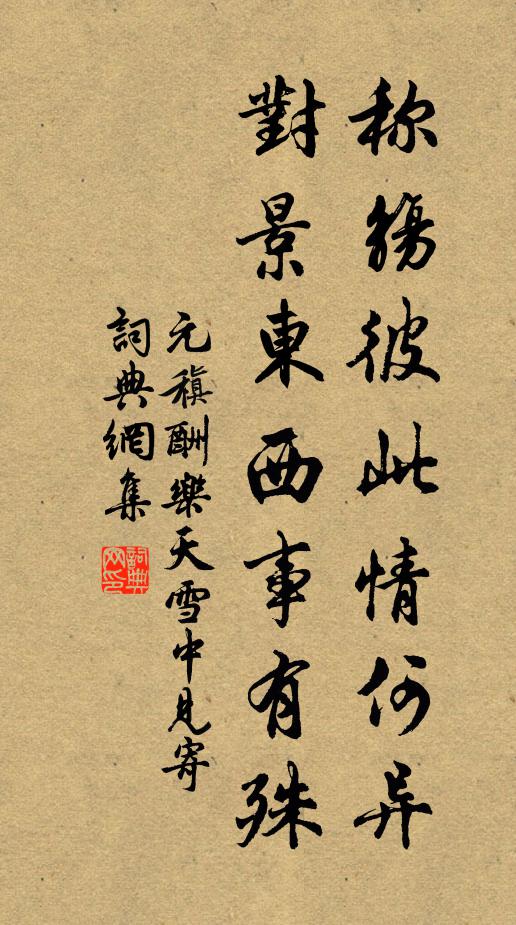 称觞彼此情何异
對景東西事有殊
元稹酬樂天雪中見寄
詞典網集
詞典网印